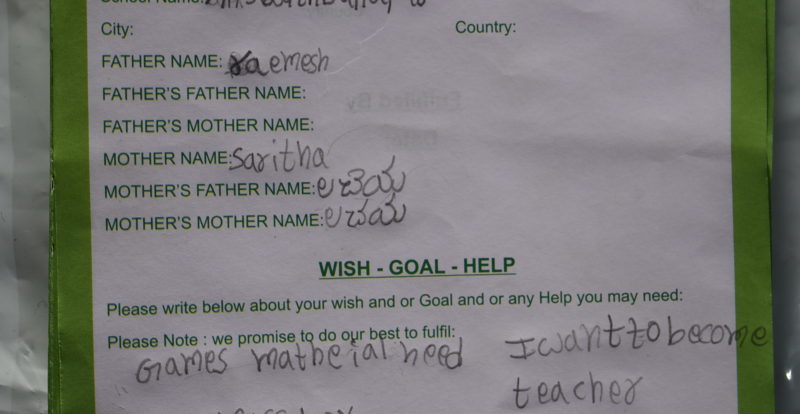 City: Country:
FATHER NAME: raemesh
FATHER'S FATHER NAME:
FATHER'S MOTHER NAME:
MOTHER NAME: Saritha
MOTHER'S FATHER NAME:
MOTHER'S MOTHER NAME:
WISH - GOAL - HELP
Please write below about your wish and or Goal and or any Help you may need:
Please Note : we promise to do our best to fulfil:
Games matheial need I want to become
teacher